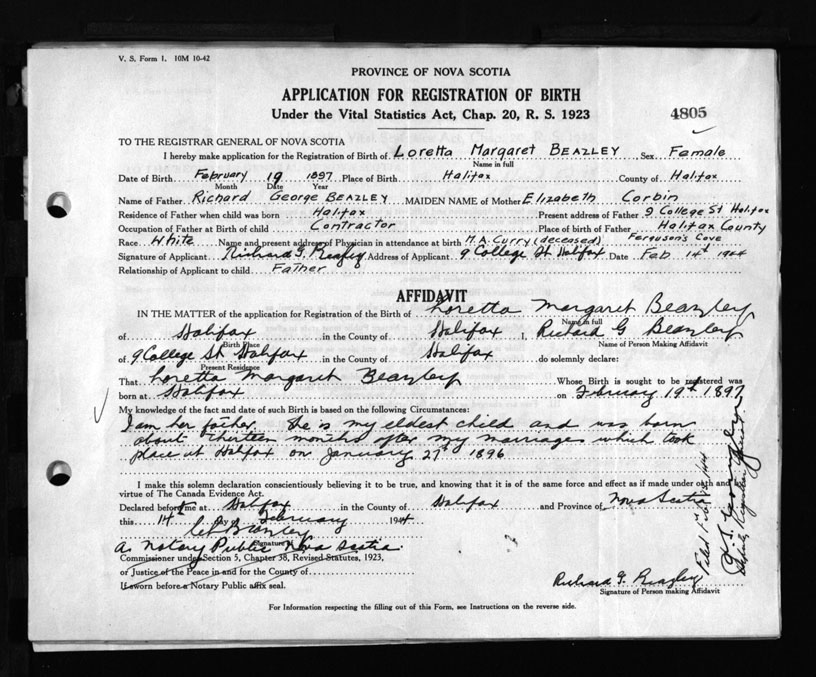 V. S. Form 1. 10M 10-42
PROVINCE OF NOVA SCOTIA
APPLICATION FOR REGISTRATION OF BIRTH
Under the Vital Statistics Act, Chap. 20, R. S. 1923
4805
TO THE REGISTRAR GENERAL OF NOVA SCOTIA
I hereby make application for the Registration of Birth of Loretta Margaret BEAZLEY, Sex Famale
Name in full
Date of Birth February 19 1897 Place of Birth Halifax County of Halifax
Month Date Year
Name of Father Richard George BEAZLEY MAIDEN NAME of Mother Elizabeth Corbin
Residence of Father when child was born Halifax Present address of Father 9 College St Halifax
Occupation of Father at Birth of child Contractor Place of birth of Father Halifax County
Ferguson's Cove
Race White Name and present address of Physician in attendance at birth M. A. Curry (deceased)
Signature of Applicant Richard G. Beazley Address of Applicant 9 College St Halifax Date Feb 14th 1944
Relationship of Applicant to child Father
AFFIDAVIT
IN THE MATTER of the application for Registration of the Birth of Loretta Margaret Beazley
Name in full
of Halifax in the County of Halifax I, Richard G Beazley
Birth Place Name of Person Making Affidavit
of 9 College St Halifax in the County of Halifax do solemnly declare:
Present Residence
That Loretta Margaret Beazley Whose Birth is sought to be registered was
born at Halifax on February 19th 1897
My knowledge of the fact and date of such Birth is based on the following Circumstances:
I am her father. She is my eldest child and was born
about thirteen months after my marriage which took
place at Halifax on January 27th 1896
I make this solemn declaration conscientiously believing it to be true, and knowing that it is of the same force and effect as if made under oath and
virtue of The Canada Evidence Act.
Declared before me at Halifax in the County of Halifax and Province of Nova Scotia
this 14th day of February 1944
Beazley
Signature
A Notary Public Nova Scotia.
Commissioner under Section 5, Chapter 38, Revised Statutes, 1923,
or Justice of the Peace in and for the County of
If sworn before a Notary Public affix seal.
Richard G. Beazley
Signature of Person making Affidavit
For Information respecting the filling out of this Form, see Instructions on the reverse side.
Filed